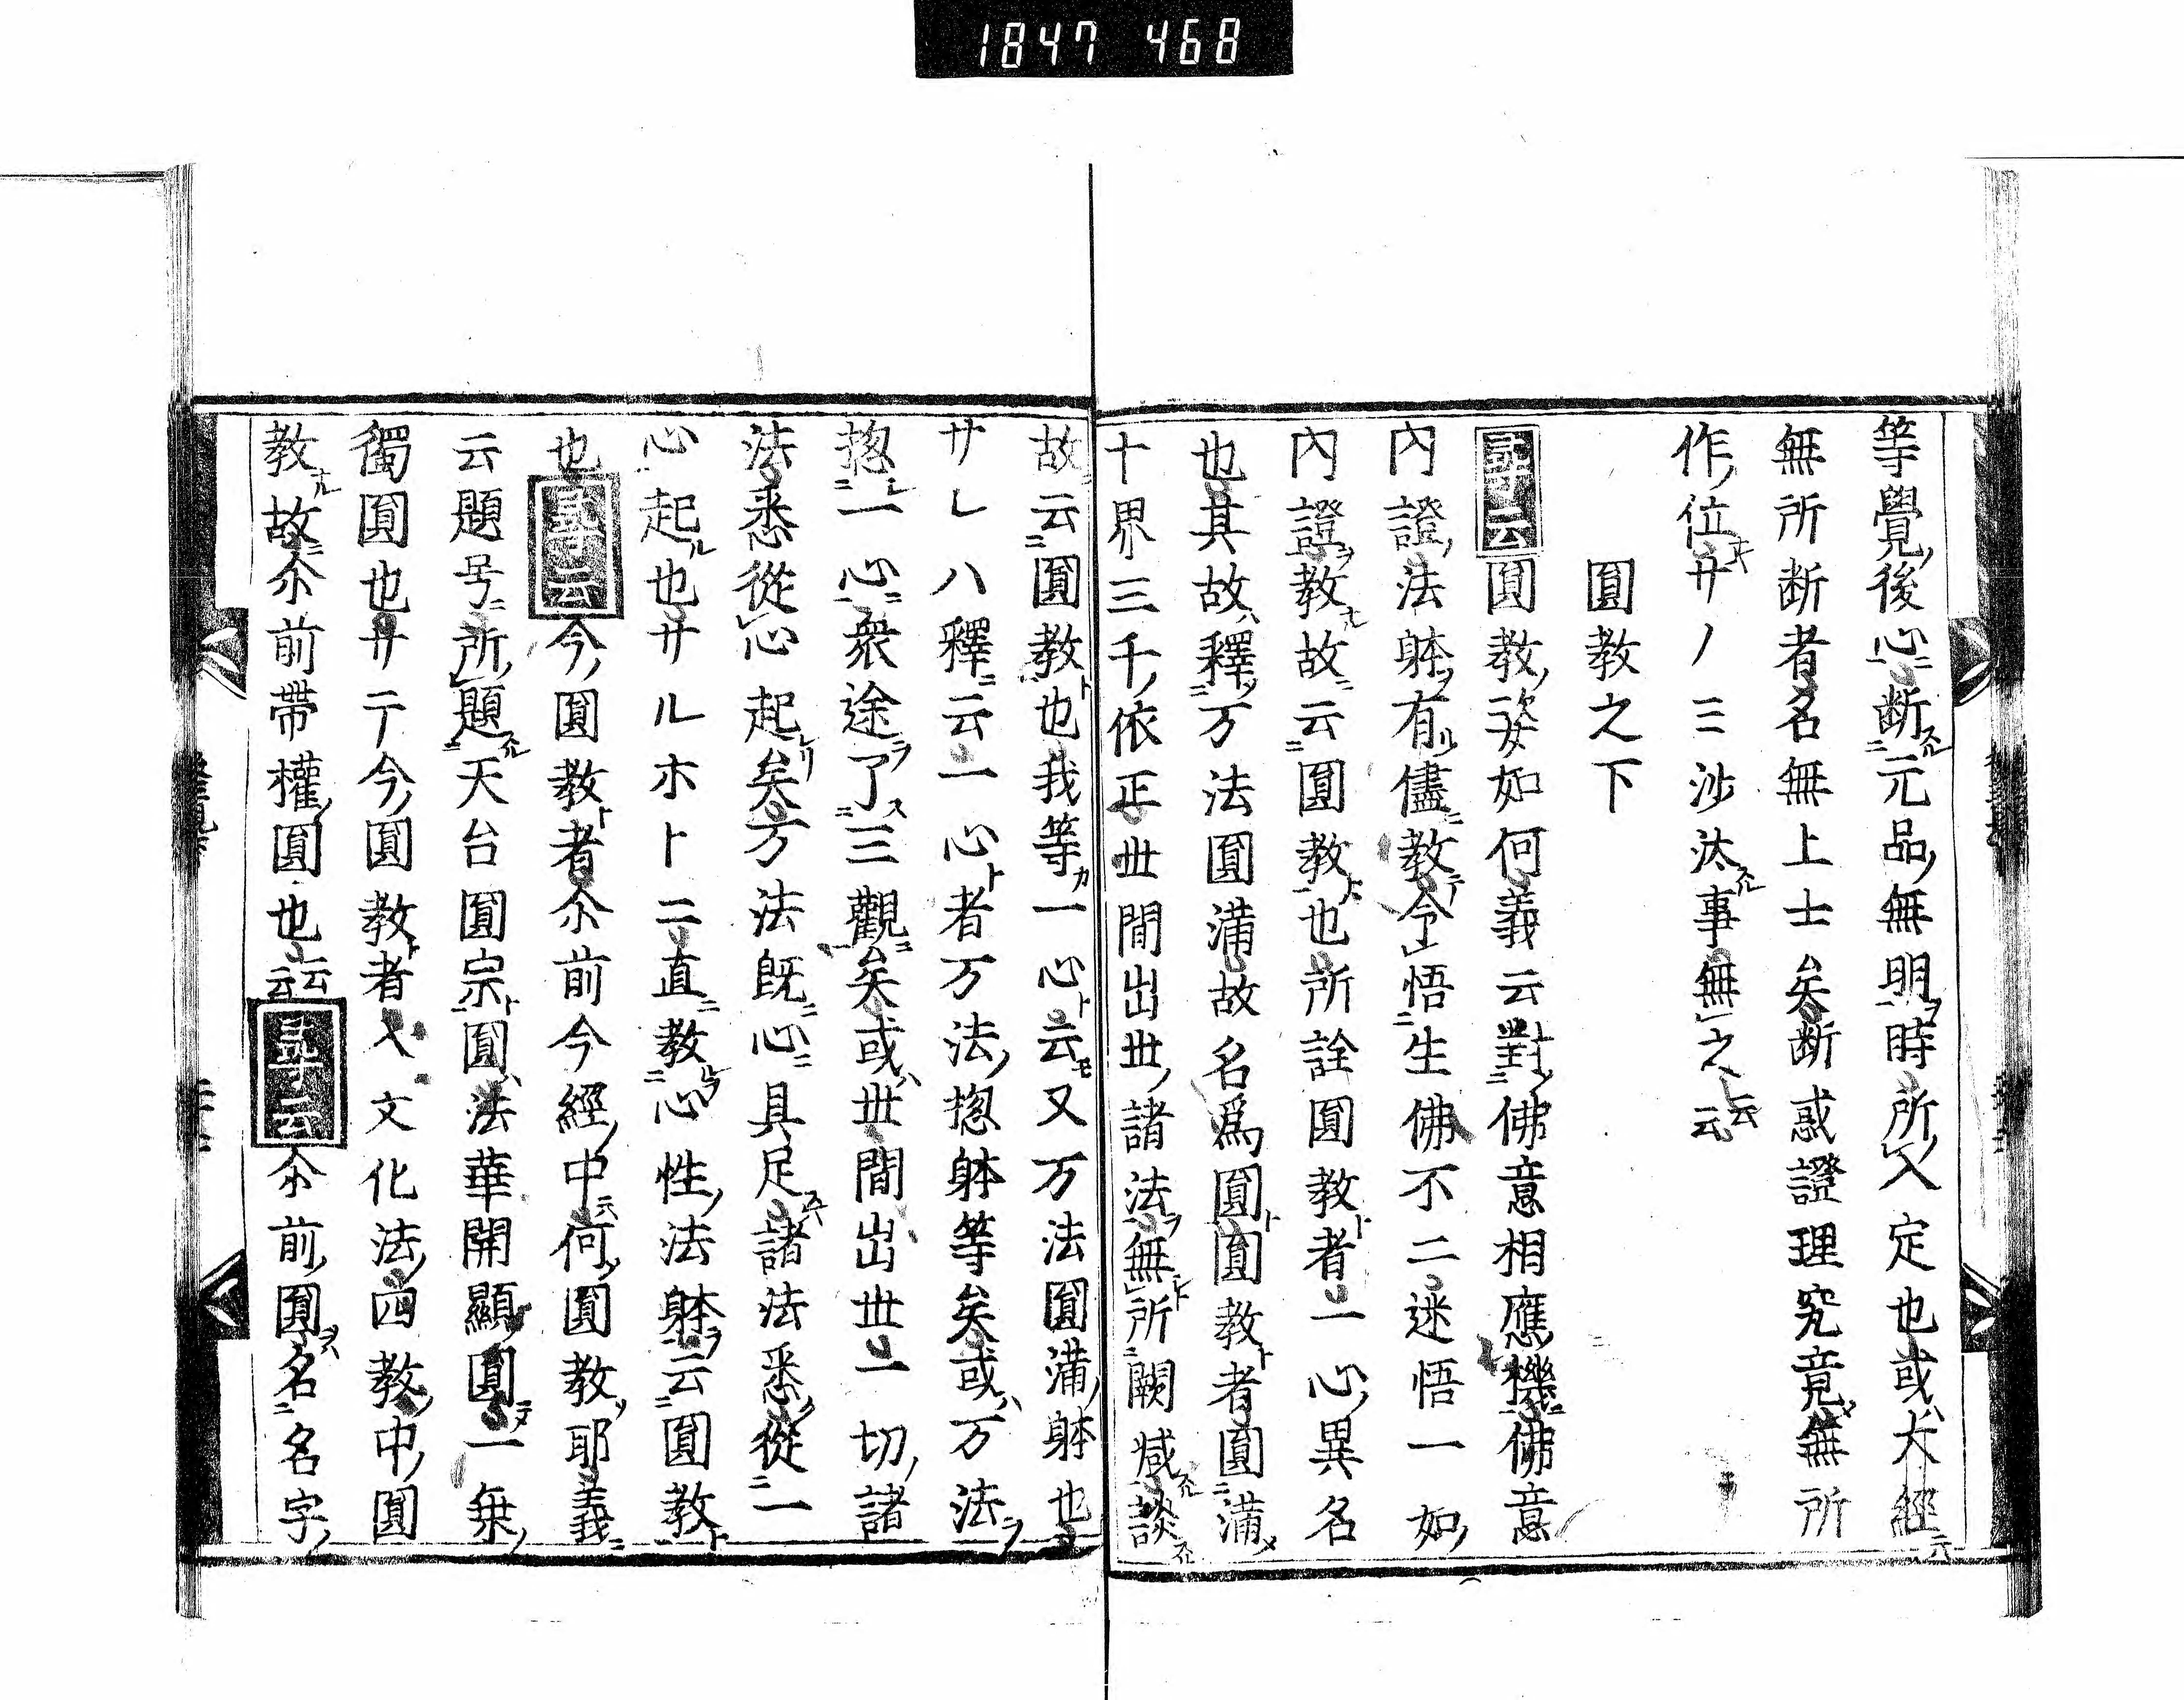 1847 468
等覺後心断元品無明時所入定也或大經
無所断者名無上士矣断惑證理究竟無所
作位サノ三沙汰事無之云云
圓教之下
尋云圓教姿如何義云對佛意相應機佛意
内證法躰有儘教令悟生佛不二迷悟一如
内證教故云圓教也所詮圓教者一心異名
也其故釋万法圓滿故名爲圓圓教者圓滿
十界三千依正世間出世諸法無所闕减談
故云圓教也我等一心云又万法圓滿躰也
サレハ釋云一心者万法揔躰等矣或万法
揔一心衆途了三觀矣或世間出世一切諸
法悉從心起矣万法既心具足諸法悉從一
心起也サルホト二直教心性法躰云圓教
也尋云今圓教者尒前今經中何圓教耶義
云題号所題天台圓宗圓法華開顯圓一乗
獨圓也サテ今圓教者入文化法四教中圓
教故尒前帶權圓也云云尋云尒前圓名名字